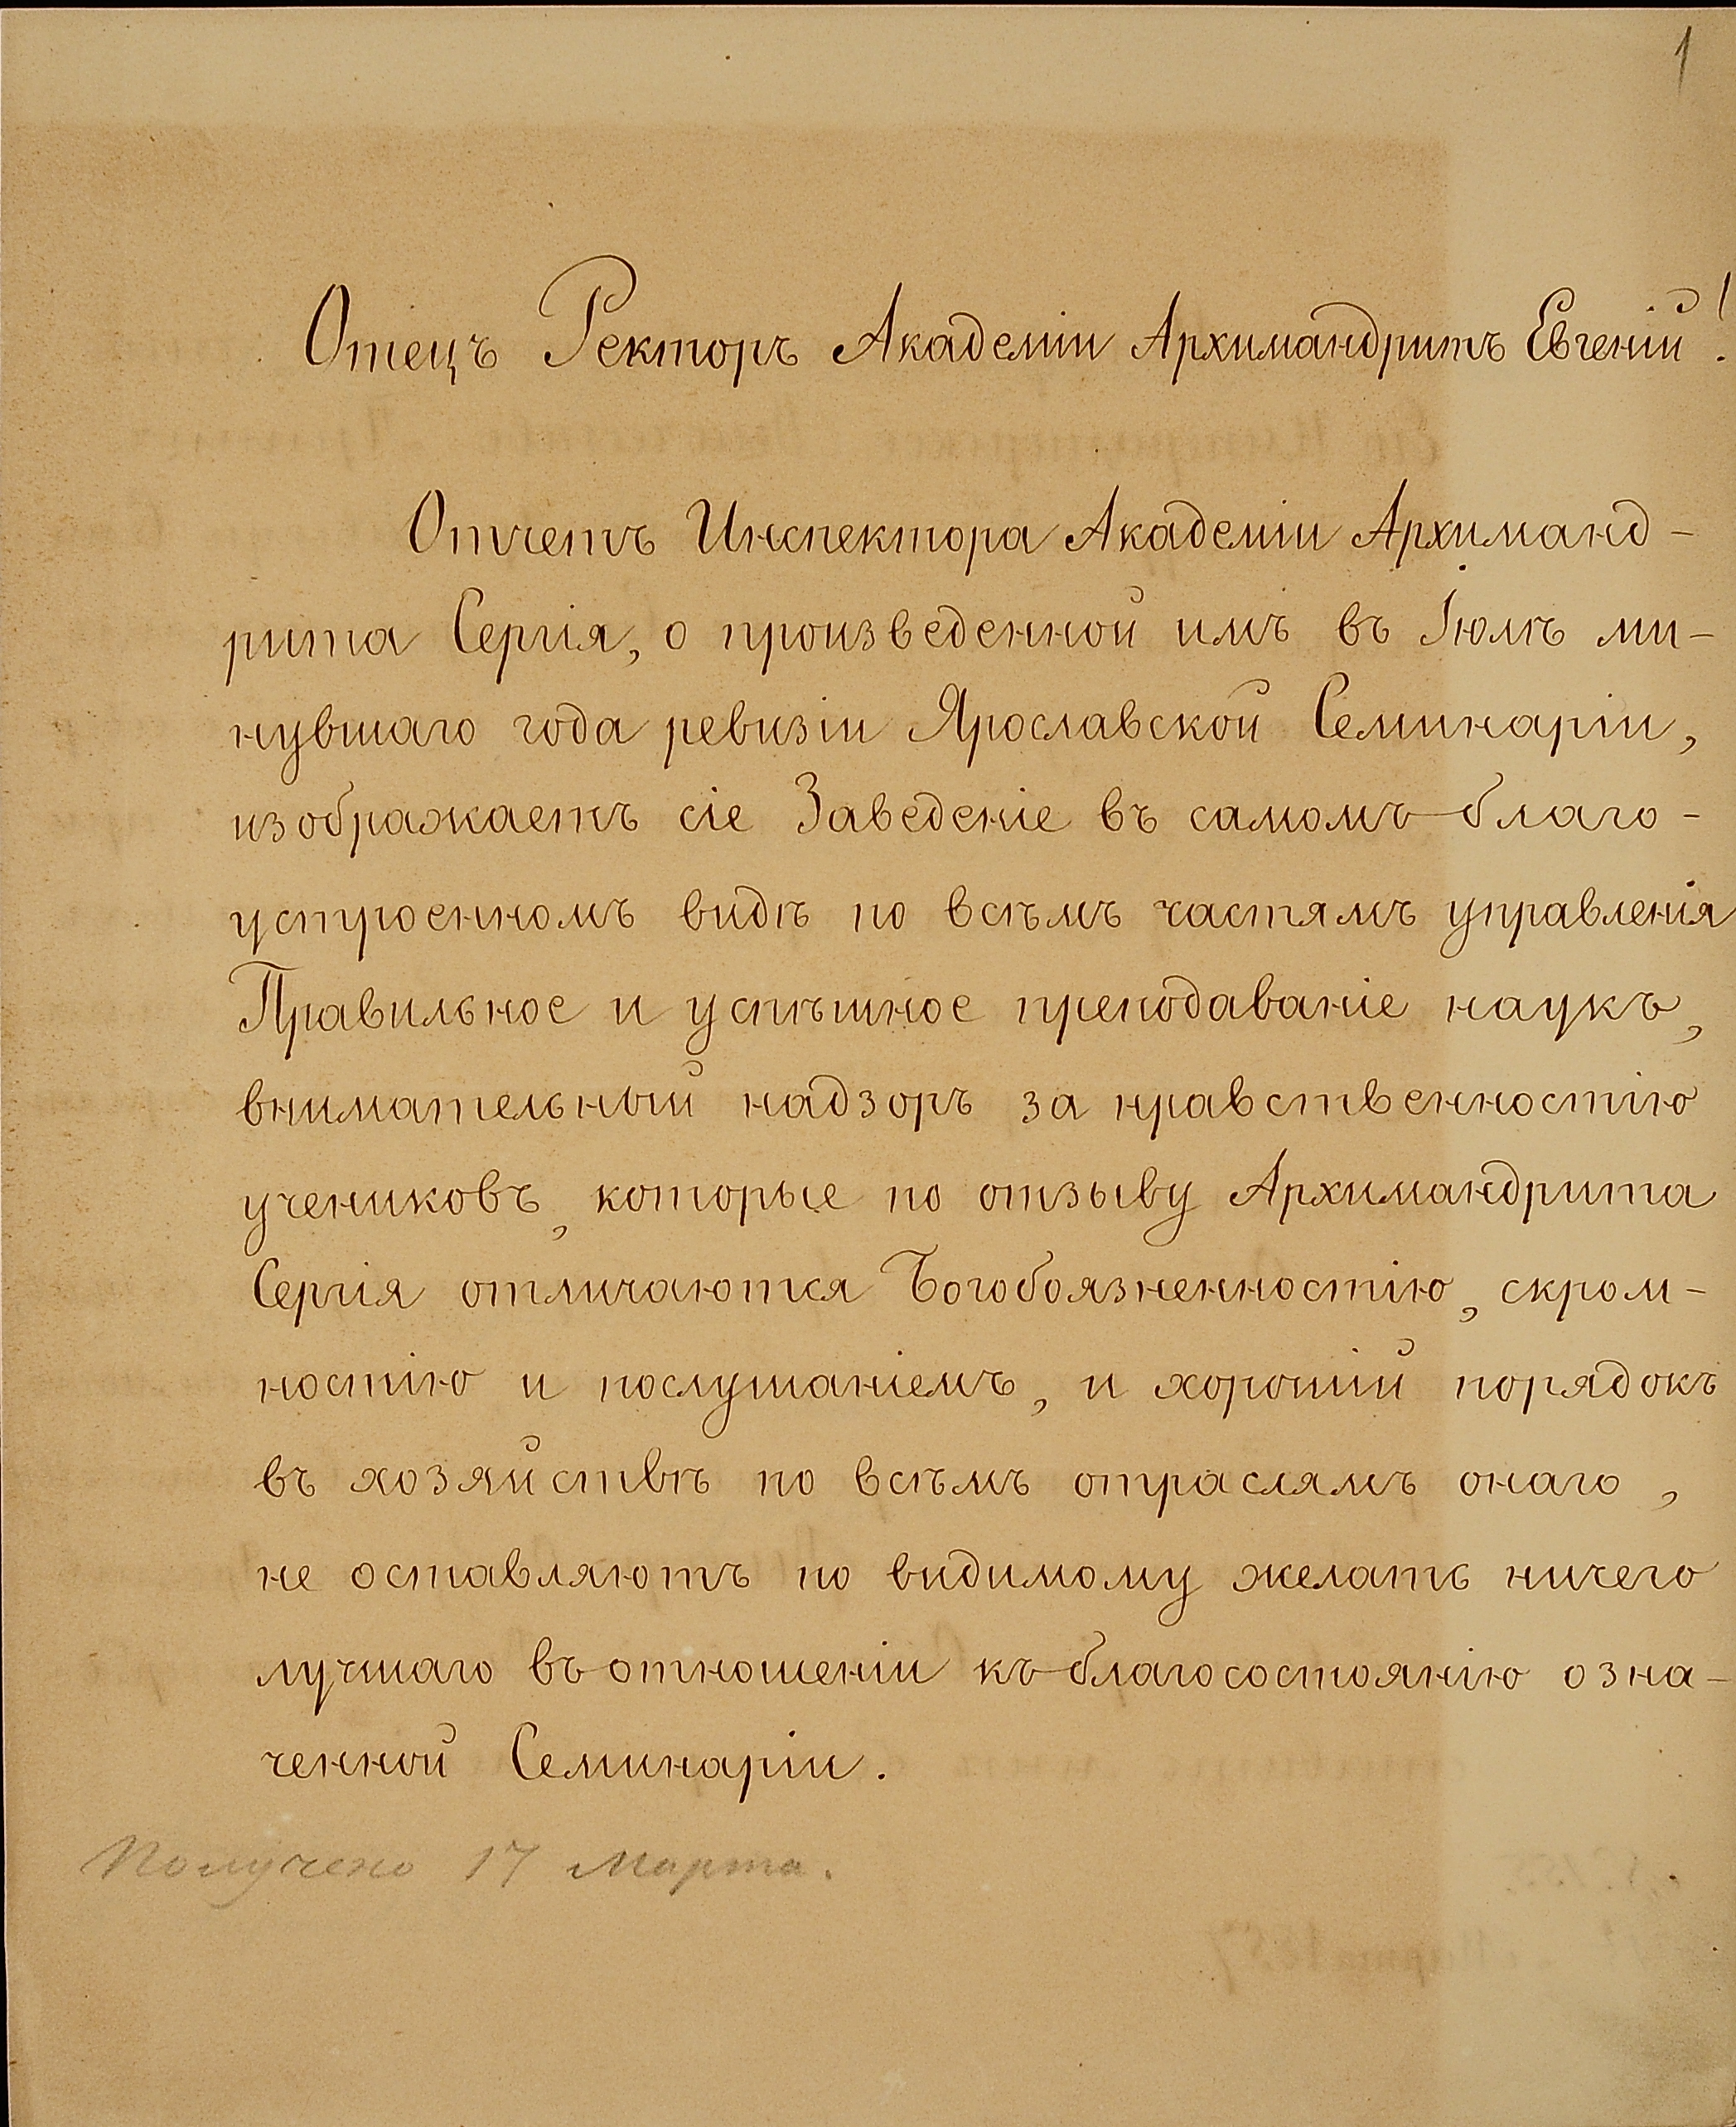 1
Отецъ Ректоръ Академіи Архимандритъ Евгеній!
Отчетъ Инспектора Академіи Архиманд-
рита Сергія, о произведенной имъ въ Іюлѣ ми-
нувшаго года ревизіи Ярославской Семинаріи,
изображаетъ сіе Заведеніе въ самомъ благо-
устроенномъ видѣ по всѣмъ частямъ управленія
Правильное и успѣшное преподаваніе наукъ,
внимательный надзоръ за нравственностію
учениковъ, которые по отзыву Архимандрита
Сергія отличаются Богобоязненностію, скром-
ностію и послушаніемъ, и хорошій порядокъ
въ хозяйствѣ по всѣмъ отраслямъ онаго,
не оставляютъ по видимому желать ничего
лучшаго въ отношеніи къ благосостоянію озна-
ченной Семинаріи.
Получено 17 Марта.